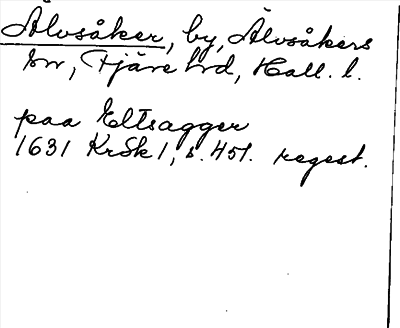 Älvsåker, by, Älvsåkers
sn, Fjäre hd, Hall. l.
paa Eltsagger
1631 KrSk 1, s. 451. regest.